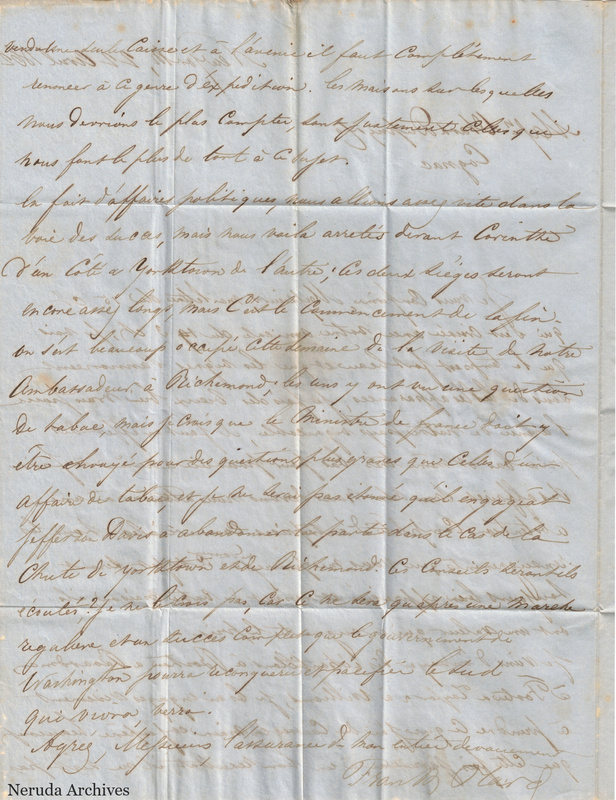 vendre une seule Caisse et à l'avenir il faut Complètement
renoncer à ce genre d'Expédition. Les maisons sur lesquelles
nous devrions le plus Compter, sont justement Celles qui
nous font le plus de tort à ce sujet.
Cognac
En fait d'affaires politiques, nous allions assez vite dans la
voie des succès, mais nous voilà arrêtés devant Corinthe
d'un Coté & Yorktown de l'autre; Ces deux sièges seront
encore assez longs, mais C'est le Commencement de la fin.
on s'est beaucoup occupé, cette semaine de la visite de notre
Ambassadeur à Richemond; les uns y ont vu une question
de tabac, mais je crois que le Ministre de france doit y
être envoyé pour des questions plus graves que Celles d'une
affaire de tabac, et je ne serai pas étonné qu'il engageât
Jefferson Davis à abandonner la partie dans le cas de la
Chute de Yorktown et de Richemond. Ces Conseils seront ils
écoutés? Je ne le crois pas, car ce ne sera qu'après une marche
et un succès Complet que le gouvernement de
Washington pourra reconquérir et pacifier le Sud
qui vivra verra.
Agréez, Messieurs l'assurance de mon entier dévouement
Neruda Archives